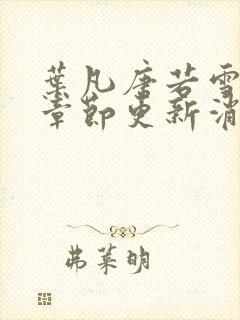 葉凡唐若雪
章節更新消
弗萊明